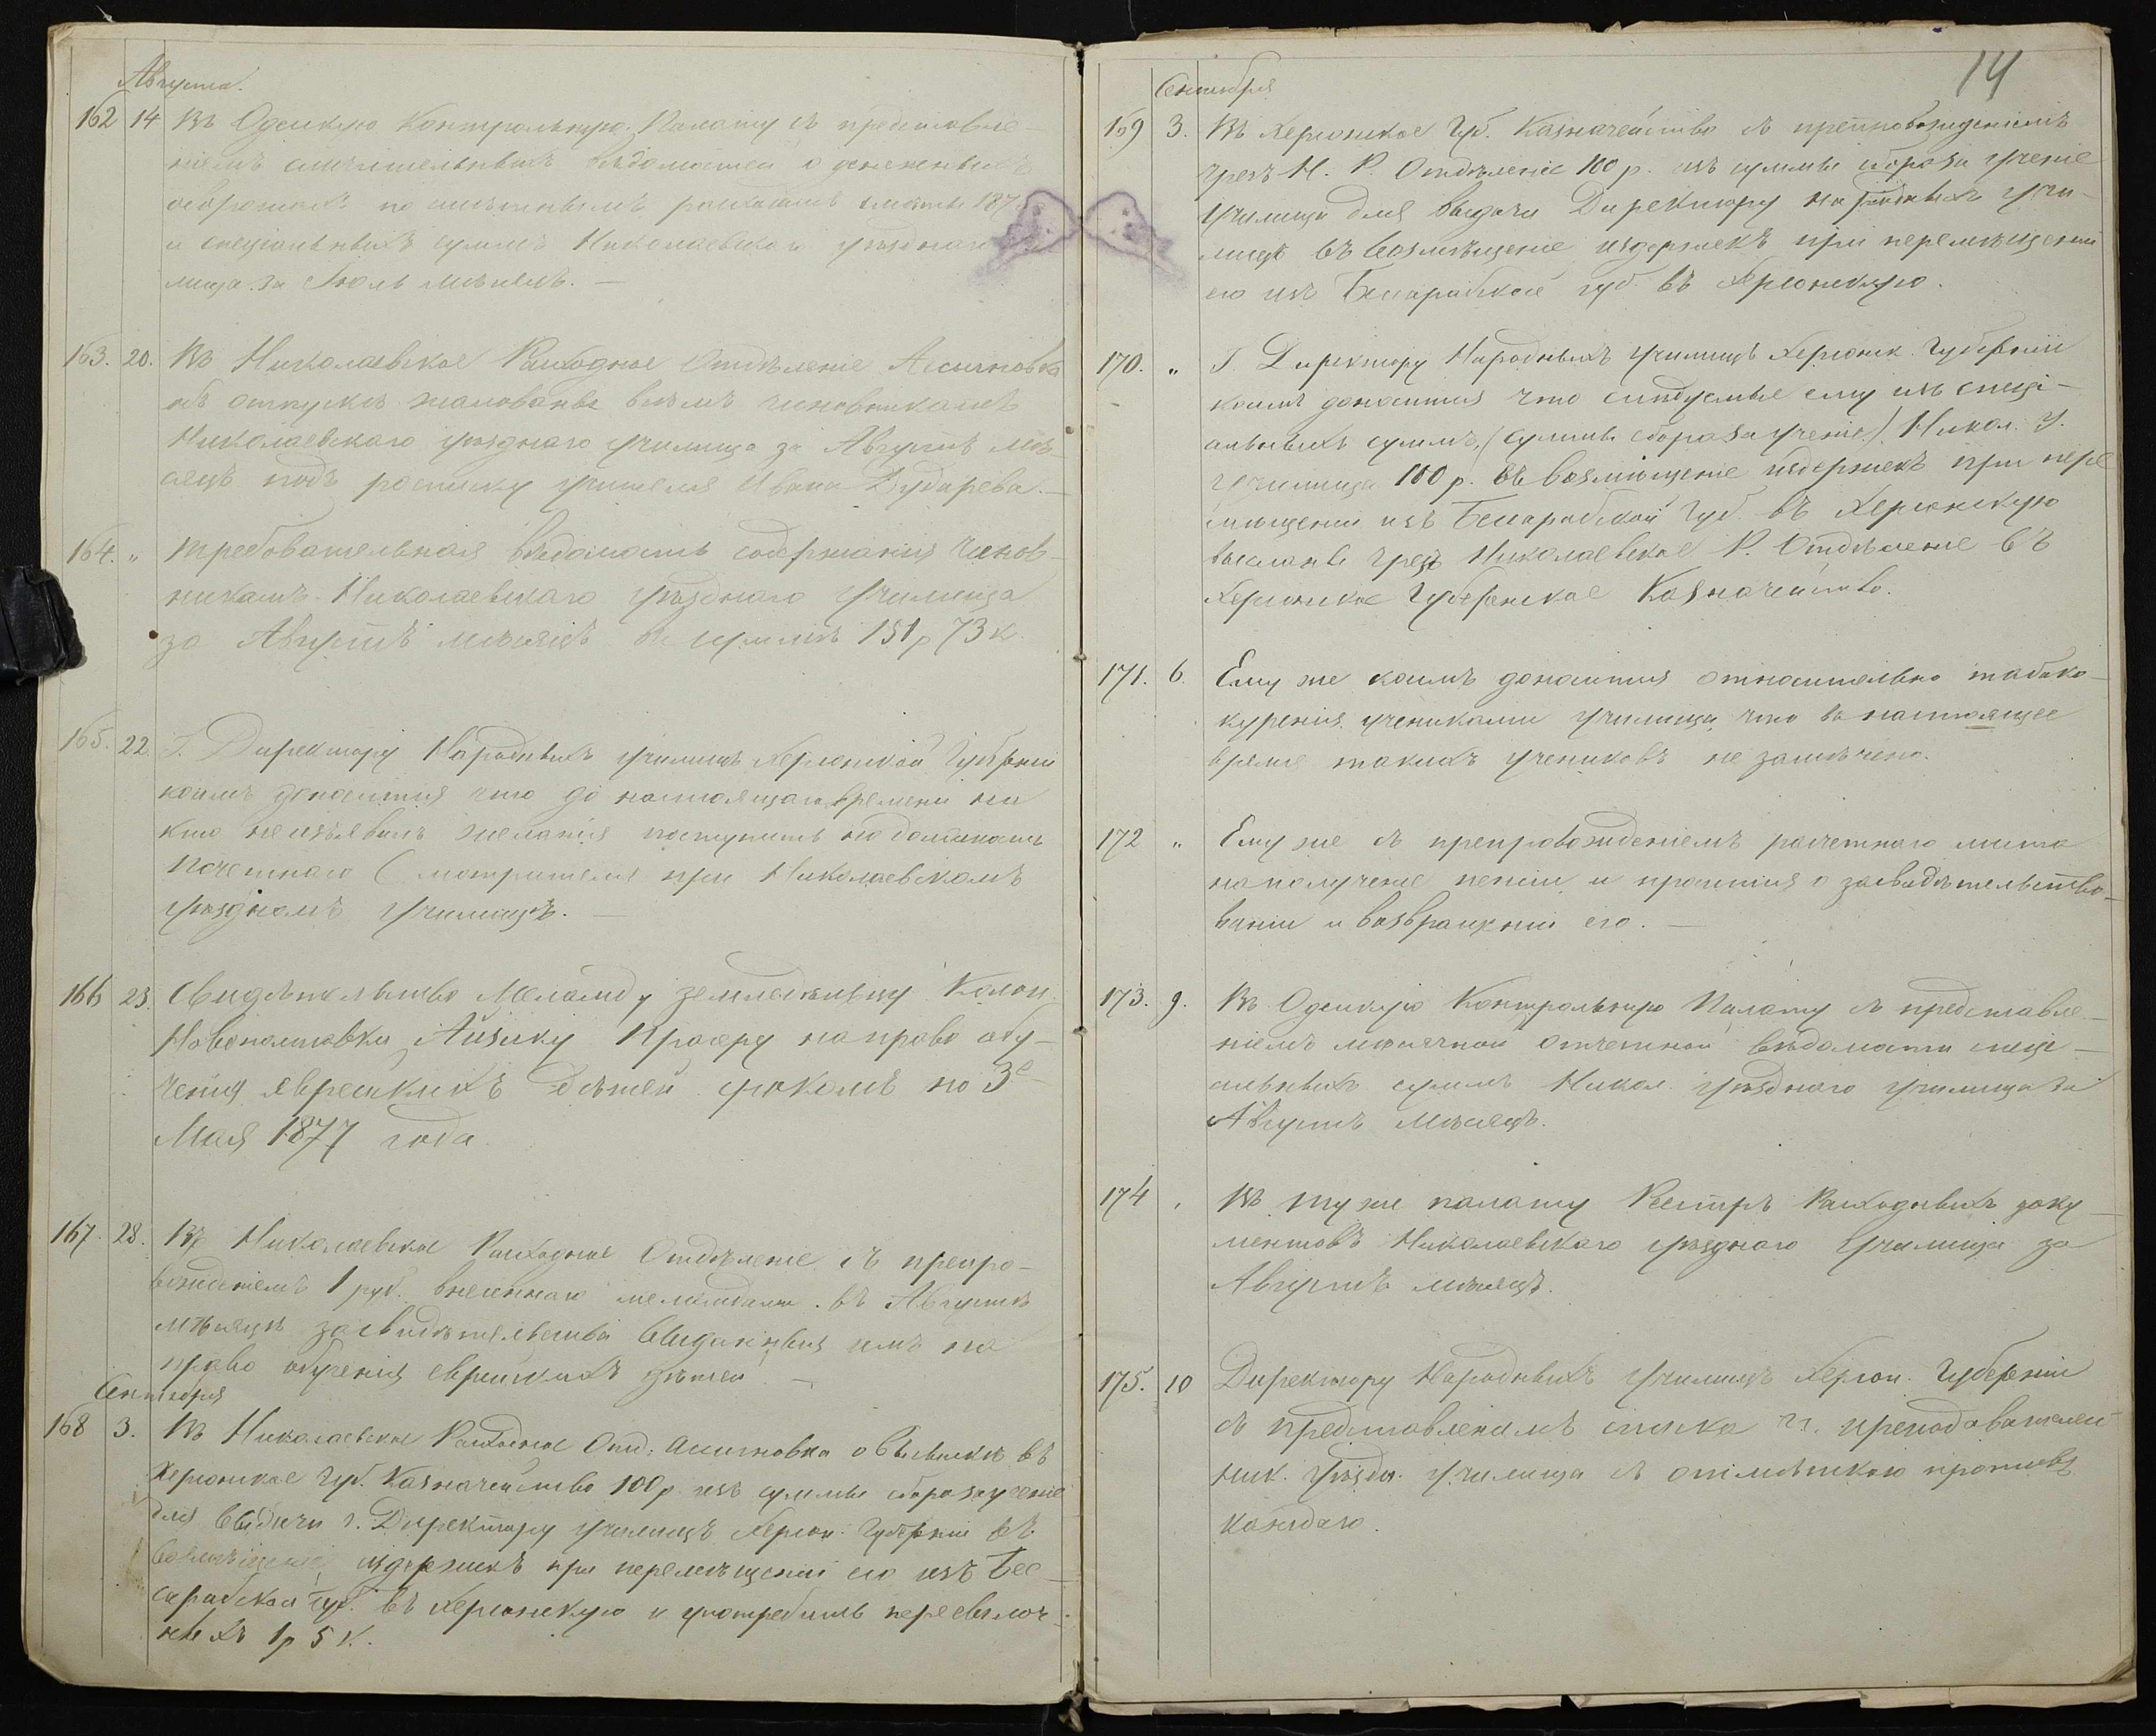 Августа.
162 14 Въ Одесскую Контрольную Палату съ представле-
ніемъ сличительныхъ вѣдомостей о денежныхъ
оборотахъ по смѣтнымъ расходамъ смѣты 187
и спеціальныхъ суммъ Николаевскаго уѣзднаго
лища за Іюль мѣсяцъ. —
163. 20. Въ Николаевское Расходное Отдѣленіе Ассигновка
объ отпускѣ жалованья всѣмъ чиновникамъ
Николаевскаго уѣзднаго училища за Августъ мѣ-
сяцъ подъ росписку учителя Ивана Дударева. —
164. „ Требовательная вѣдомость содержанія чинов-
никамъ Николаевскаго уѣзднаго училища
за Августъ мѣсяцъ въ суммѣ 151 р 73 к.
165. 22. Г. Директору Народныхъ училищъ Херсонской Губерніи
коимъ доносится что до настоящаго времени ни
кто не изъявилъ желанія поступить на должность
Почетнаго Смотрителя при Николаевскомъ
уѣздномъ училищѣ. —
166 23. Свидѣтельство Меламду земледѣльцу Колон.
Новополтавки Айзику Прагеру на право обу-
ченія еврейскихъ дѣтей срокомъ по 3е
Мая 1877 года.
167. 28. Въ Николаевское Расходное Отдѣленіе съ препро-
вожденіемъ 1 руб. внесеннаго меламдами въ Августѣ
мѣсяцѣ за свидѣтельства выданныя имъ на
право обученія еврейскихъ дѣтей —
Сентября
168 3. Въ Николаевское Расходное Отд. ассигновка о высылкѣ въ
Херсонское Губ. Казначейство 100 р. изъ суммы сбора за ученіе
для выдачи г. Директору училищъ Херсон. Губерніи въ
возмѣщеніе издержекъ при перемѣщеніи его изъ Бес-
сарабской губ. въ Херсонскую и употребить пересылоч-
ныхъ 1 р 5 к.
14
Сентября
169 3. Въ Херсонское Губ. Казначейство съ препровожденіемъ
чрезъ Н. Р. Отдѣленіе 100 р. изъ суммы сбора за ученіе
училища для выдачи Директору народныхъ учи-
лищъ въ возмѣщеніе издержекъ при перемѣщеніи
его изъ Бессарабской губ. въ Херсонскую.
170. „ Г. Директору Народныхъ училищъ Херсонск. Губерніи
коимъ доносится что слѣдуемые ему изъ спеці-
альныхъ суммъ, (суммы сбора за ученіе) Никол. У.
училища 100 р. въ возмѣщеніе издержекъ при пере
мѣщеніи изъ Бессарабской Губ. въ Херсонскую
высланы чрезъ Николаевское Р. Отдѣленіе въ
Херсонское Губернское Казначейство.
171. 6. Ему же коимъ доносится относительно табако-
куренія учениками училища, что въ настоящее
время такихъ учениковъ не замѣчено.
172 „ Ему же съ препровожденіемъ расчетнаго листа
на полученіе пенсіи и просится о засвидѣтельство-
ваніи и возвращеніи его. —
173. 9. Въ Одесскую Контрольную Палату съ представле-
ніемъ мѣсячной отчетной вѣдомости спеці-
альныхъ суммъ Никол. уѣзднаго училища за
Августъ мѣсяцъ.
174 „ Въ ту же палату Реестръ Расходныхъ доку-
ментовъ Николаевскаго уѣзднаго училища за
Августъ мѣсяцъ.
175. 10 Директору Народныхъ училищъ Херсон. Губерніи
съ представленіемъ списка гг. преподавателей
Ник. уѣздн. училища съ отмѣткою противъ
каждаго.